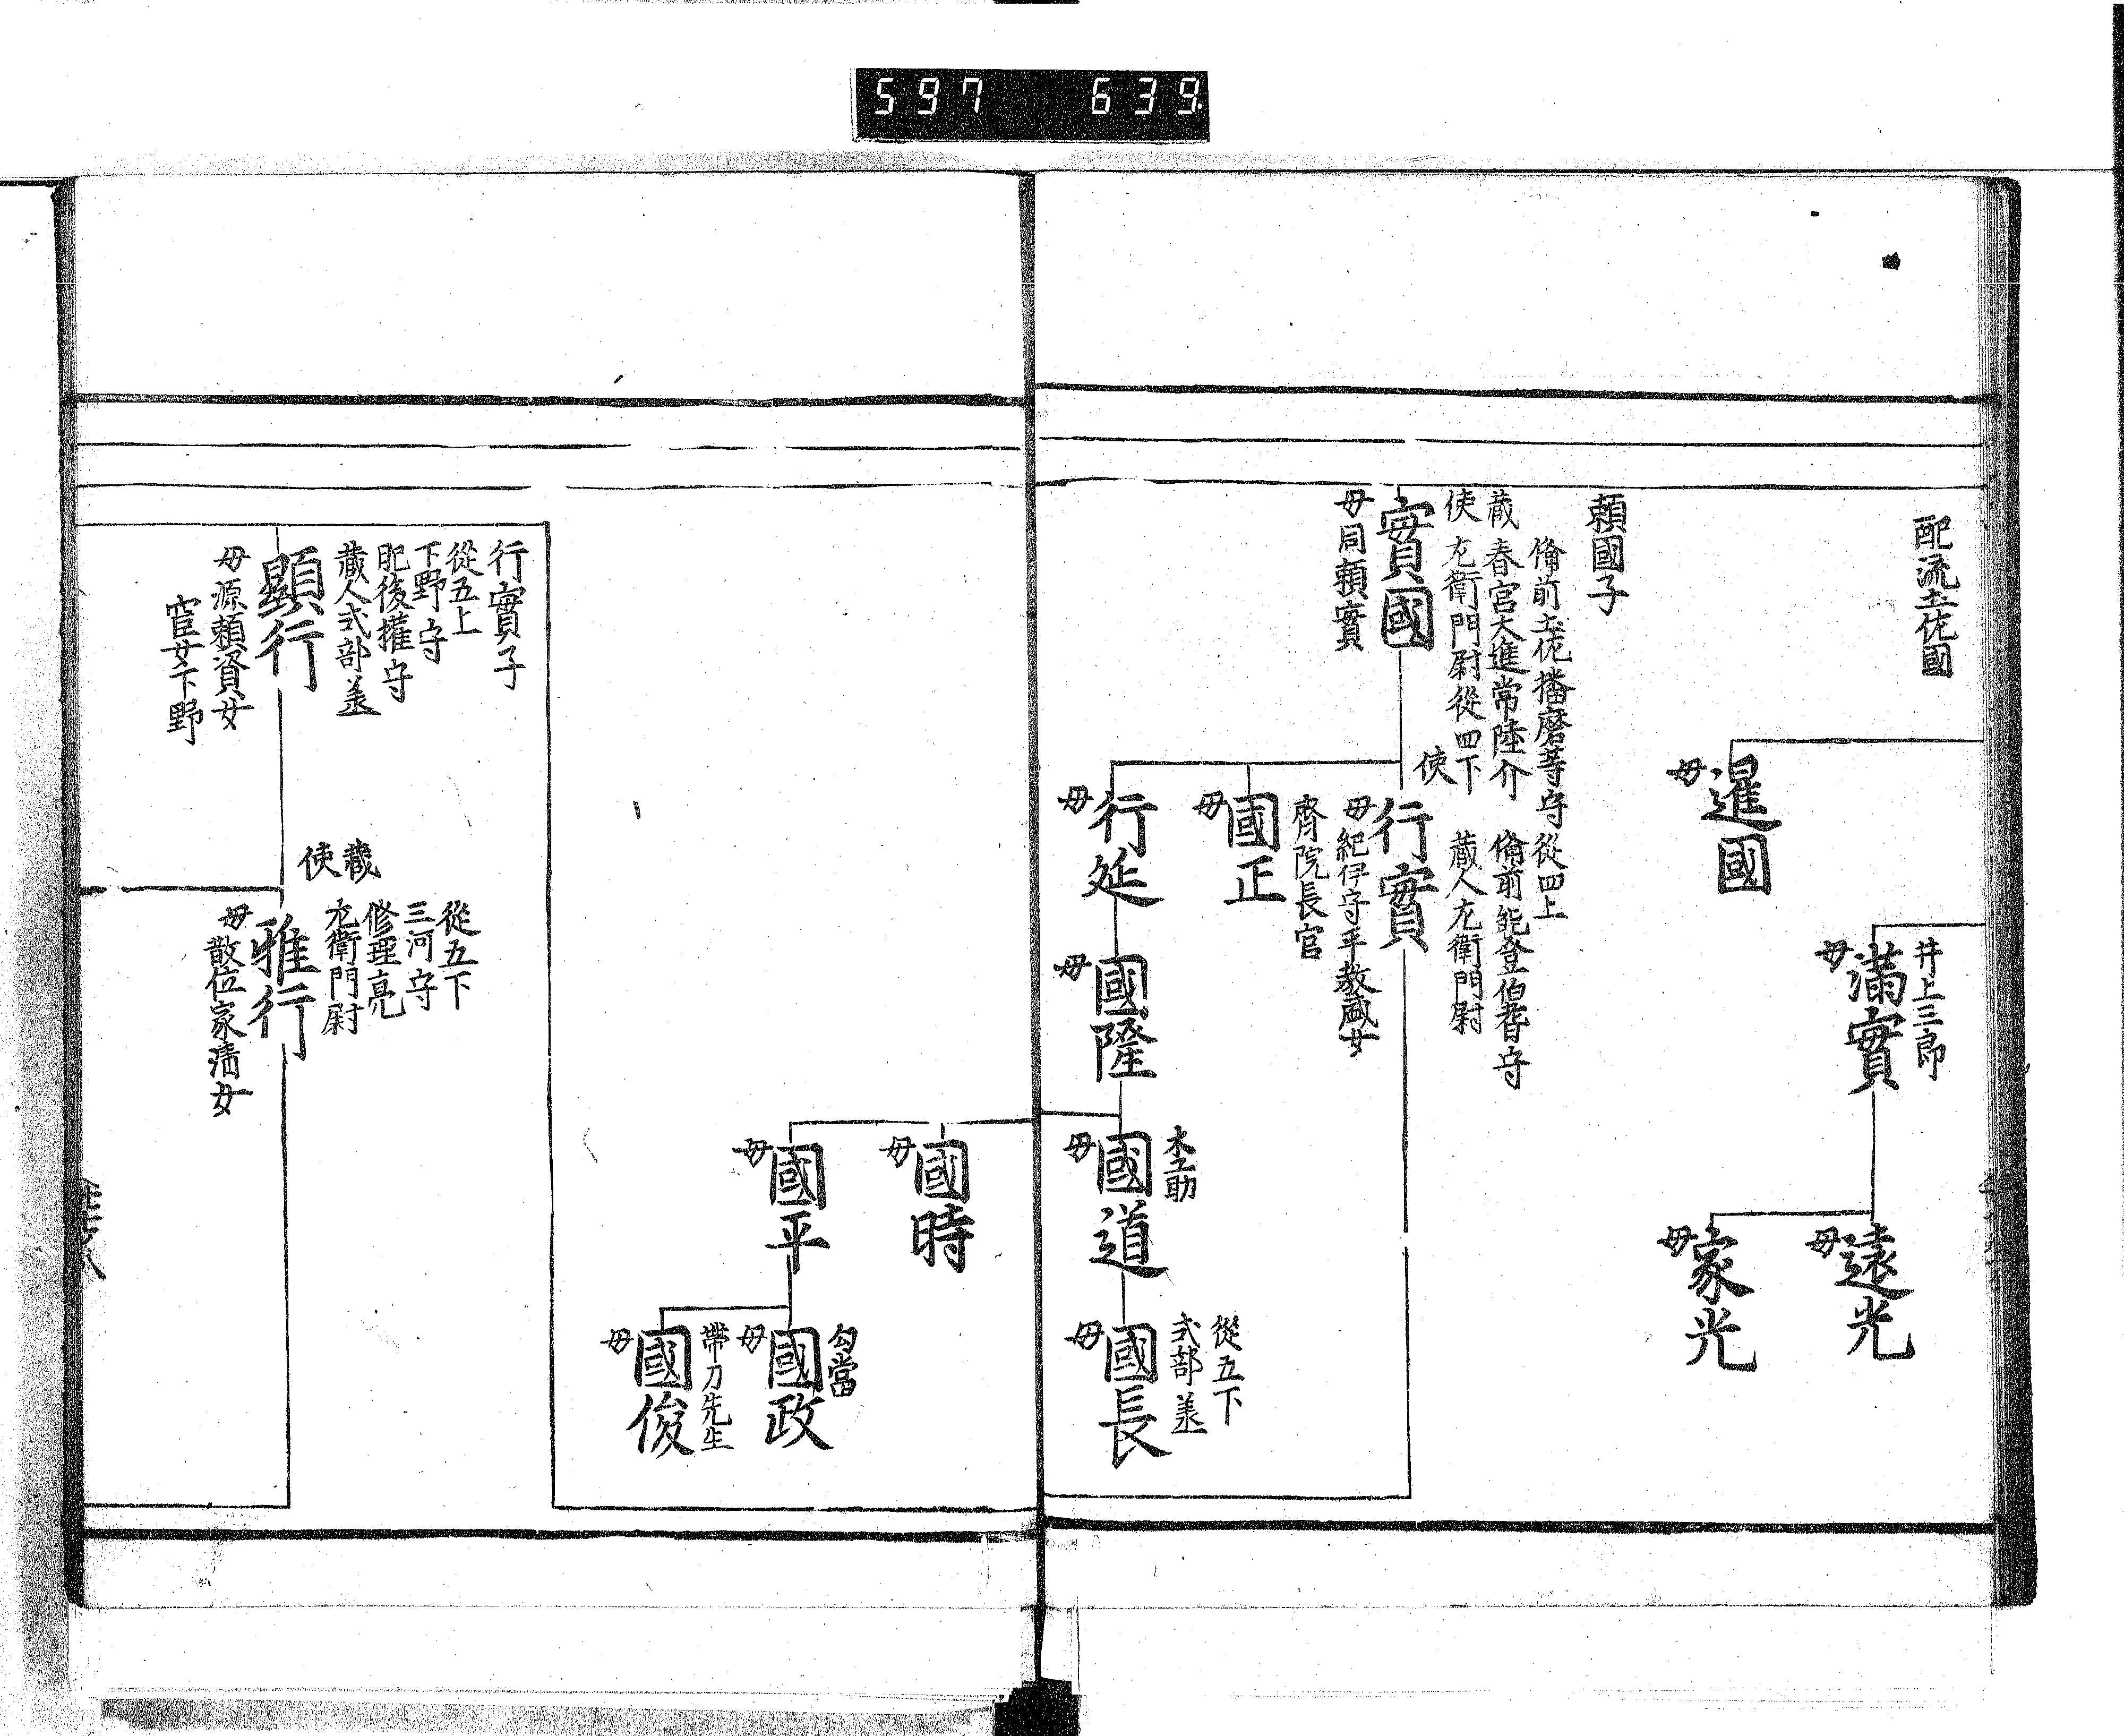 597 639
配流土佐國
暹國
母
井上三郎
滿實
母
遠光
母
家光
母
頼國子
備前土佐播磨等守
藏 春宮大進常陸介
使 左衛門尉從四下
實國
母同頼實
從四上
備前能登伯耆守
藏人左衛門尉
使
行實
母紀伊守平教盛女
齊院長官
國正
母
行延
母
國隆
母
木工助
國道
母
從五下
式部丞
國長
母
國時
母
國平
母
勾當
國政
母
帶刀先生
國俊
母
行實子
從五上
下野守
肥後權守
藏人式部丞
顯行
母源頼資女
官女下野
從五下
三河守
修理亮
左衛門尉
藏
使
雅行
母散位家清女